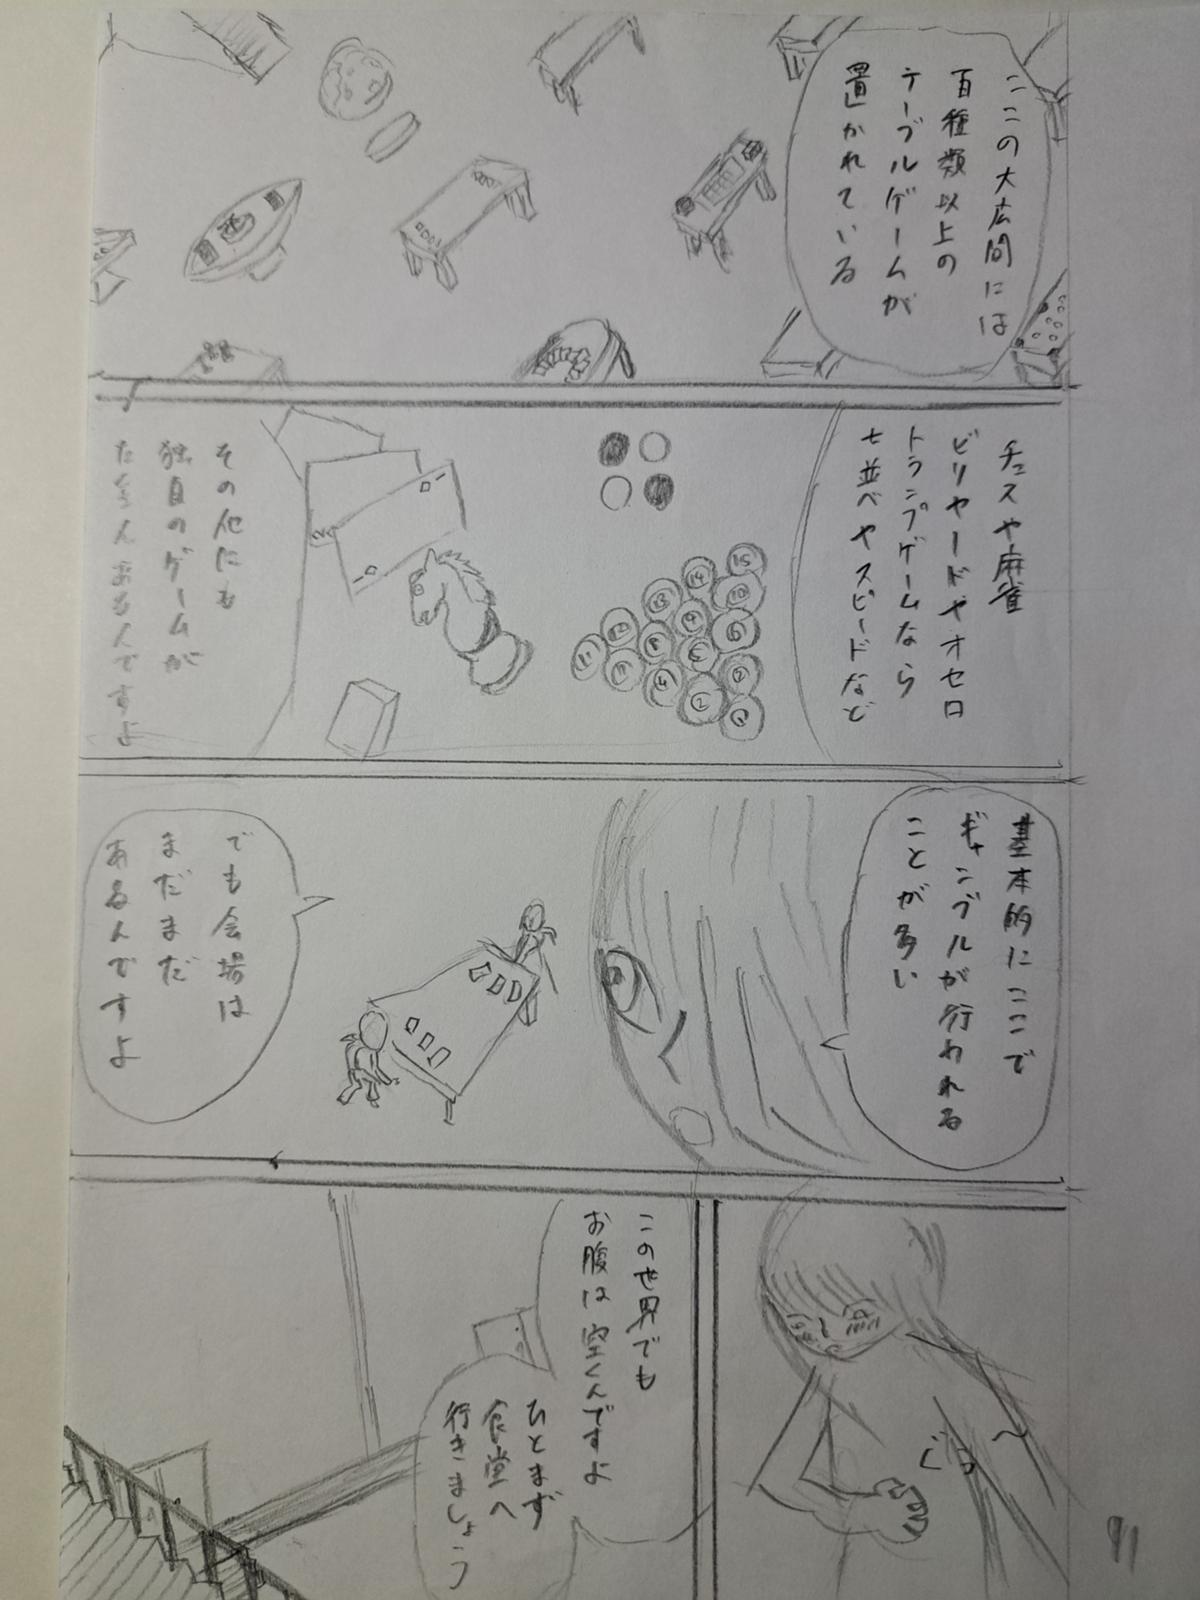 ここの大広間には
百種類以上の
テーブルゲームが
置かれている
チェスや麻雀
ビリヤードやオセロ
トランプゲームなら
七並べやスピードなど
その他にも
独自のゲームが
たくさんあるんですよ
基本的にここで
ギャンブルが行われる
ことが多い
でも会場は
まだまだ
あるんですよ
ぐぅ〜
この世界でも
お腹は空くんですよ
ひとまず
食堂へ
行きましょう